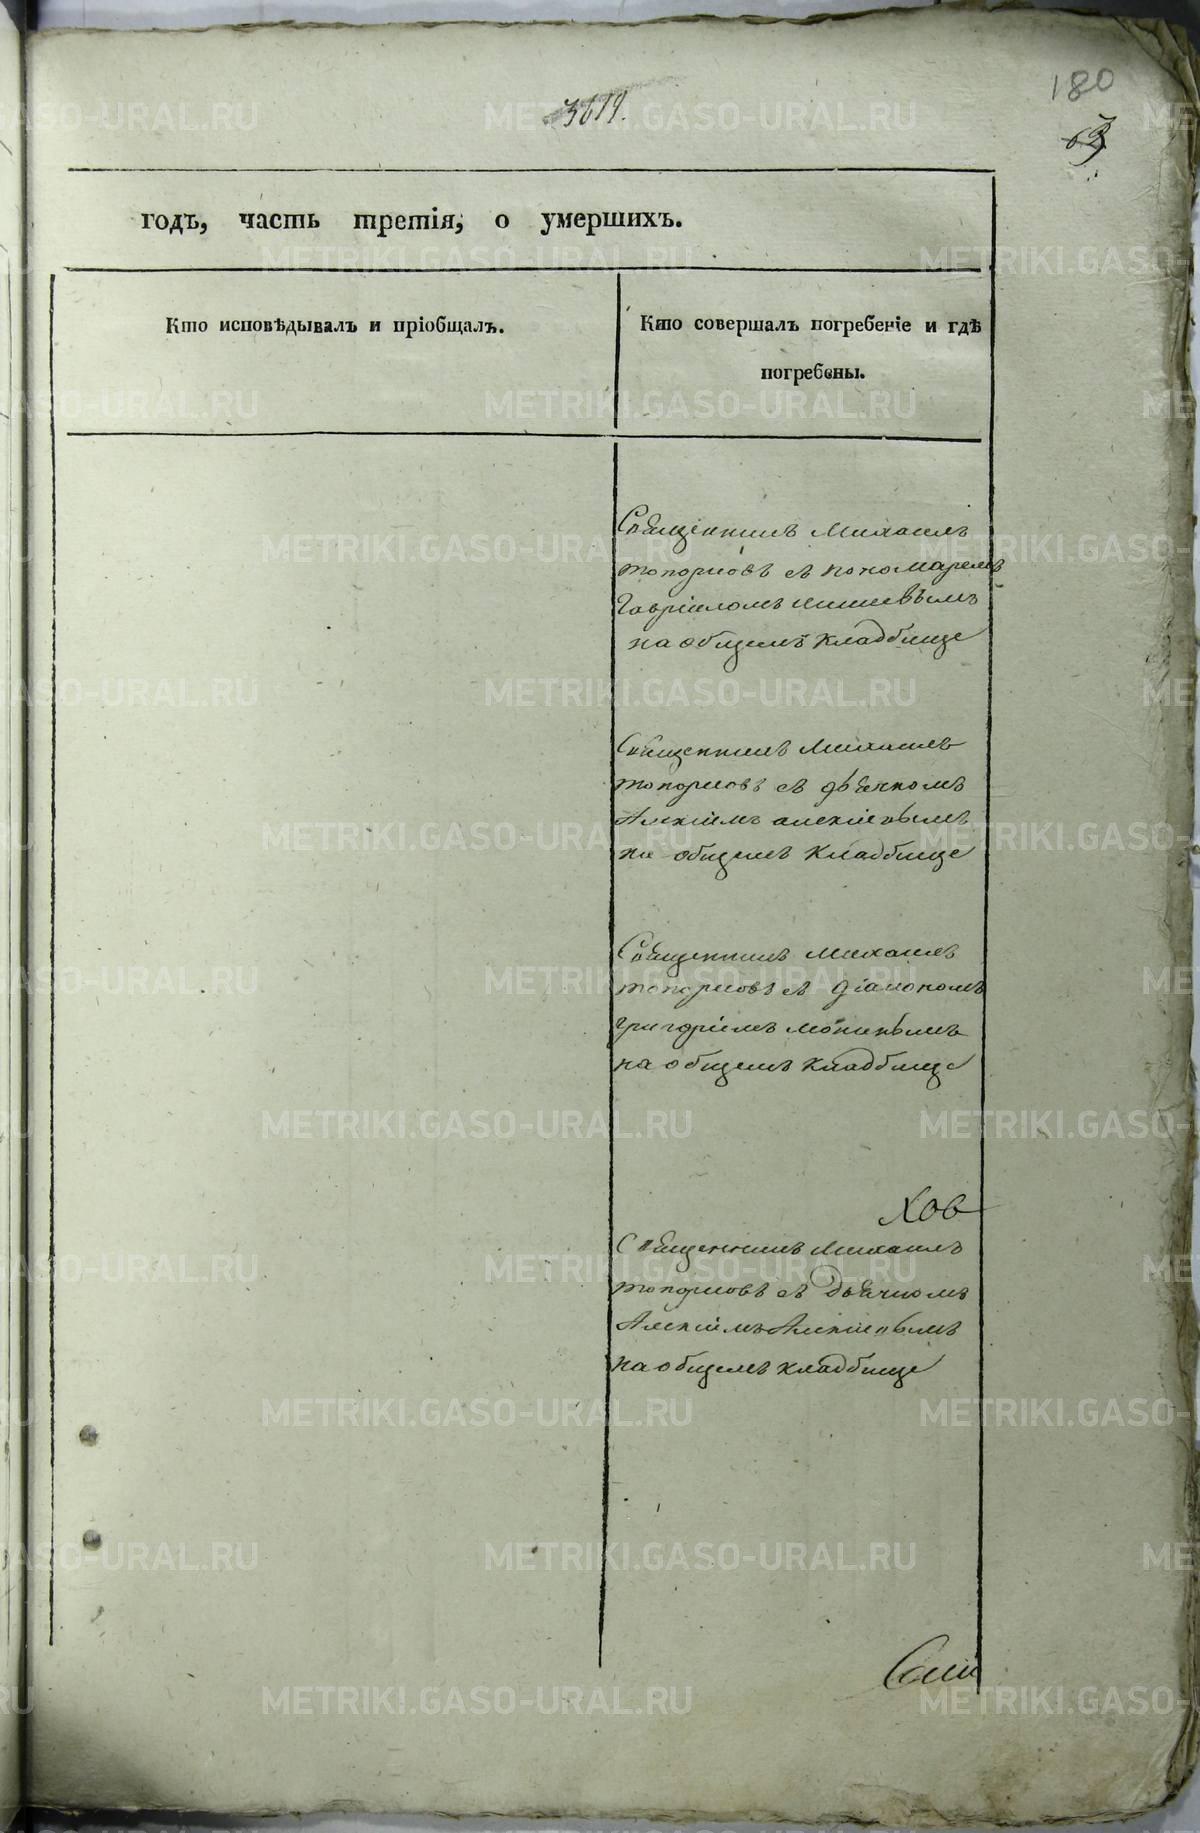 180
3619.
63
годъ, часть третія, о умершихъ.
Кто исповѣдывалъ и пріобщалъ.
Кто совершалъ погребеніе и гдѣ
погребены.
Священникъ Михаилъ
топорковъ съ пономаремъ
Гавріиломъ
на общемъ кладбище
Священникъ Михаилъ
топорковъ съ дьячкомъ
Алексіемъ алексіевымъ
на общемъ кладбище
Священникъ Михаилъ
топорковъ съ діакономъ
григоріемъ
на общемъ кладбище
Хов
Священникъ Михаилъ
топорковъ съ Дьячкомъ
Алексіемъ Алексіевымъ
на общемъ кладбище
METRIKI.GASO-URAL.RU